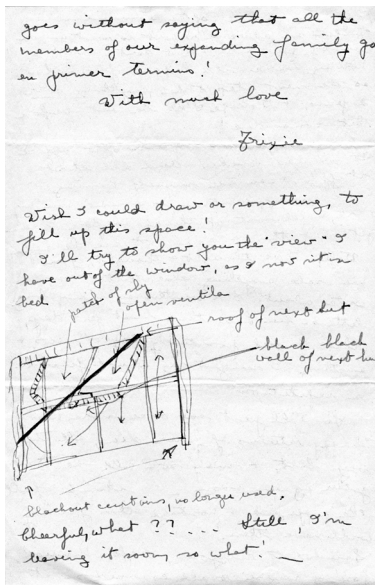 goes without saying that all the
members of our expanding family go
en primer termino!
With much love
Trixie
Wish I could draw or something, to
fill up this space!
I'll try to show you the "view" I
have out of the window, as I now sit in
bed
patch of sky
open ventila
roof of next hut
black black
wall of next hu
blackout curtains, no longer used.
Cheerful, what ??.... Still, I'm
leaving it soon, so what!